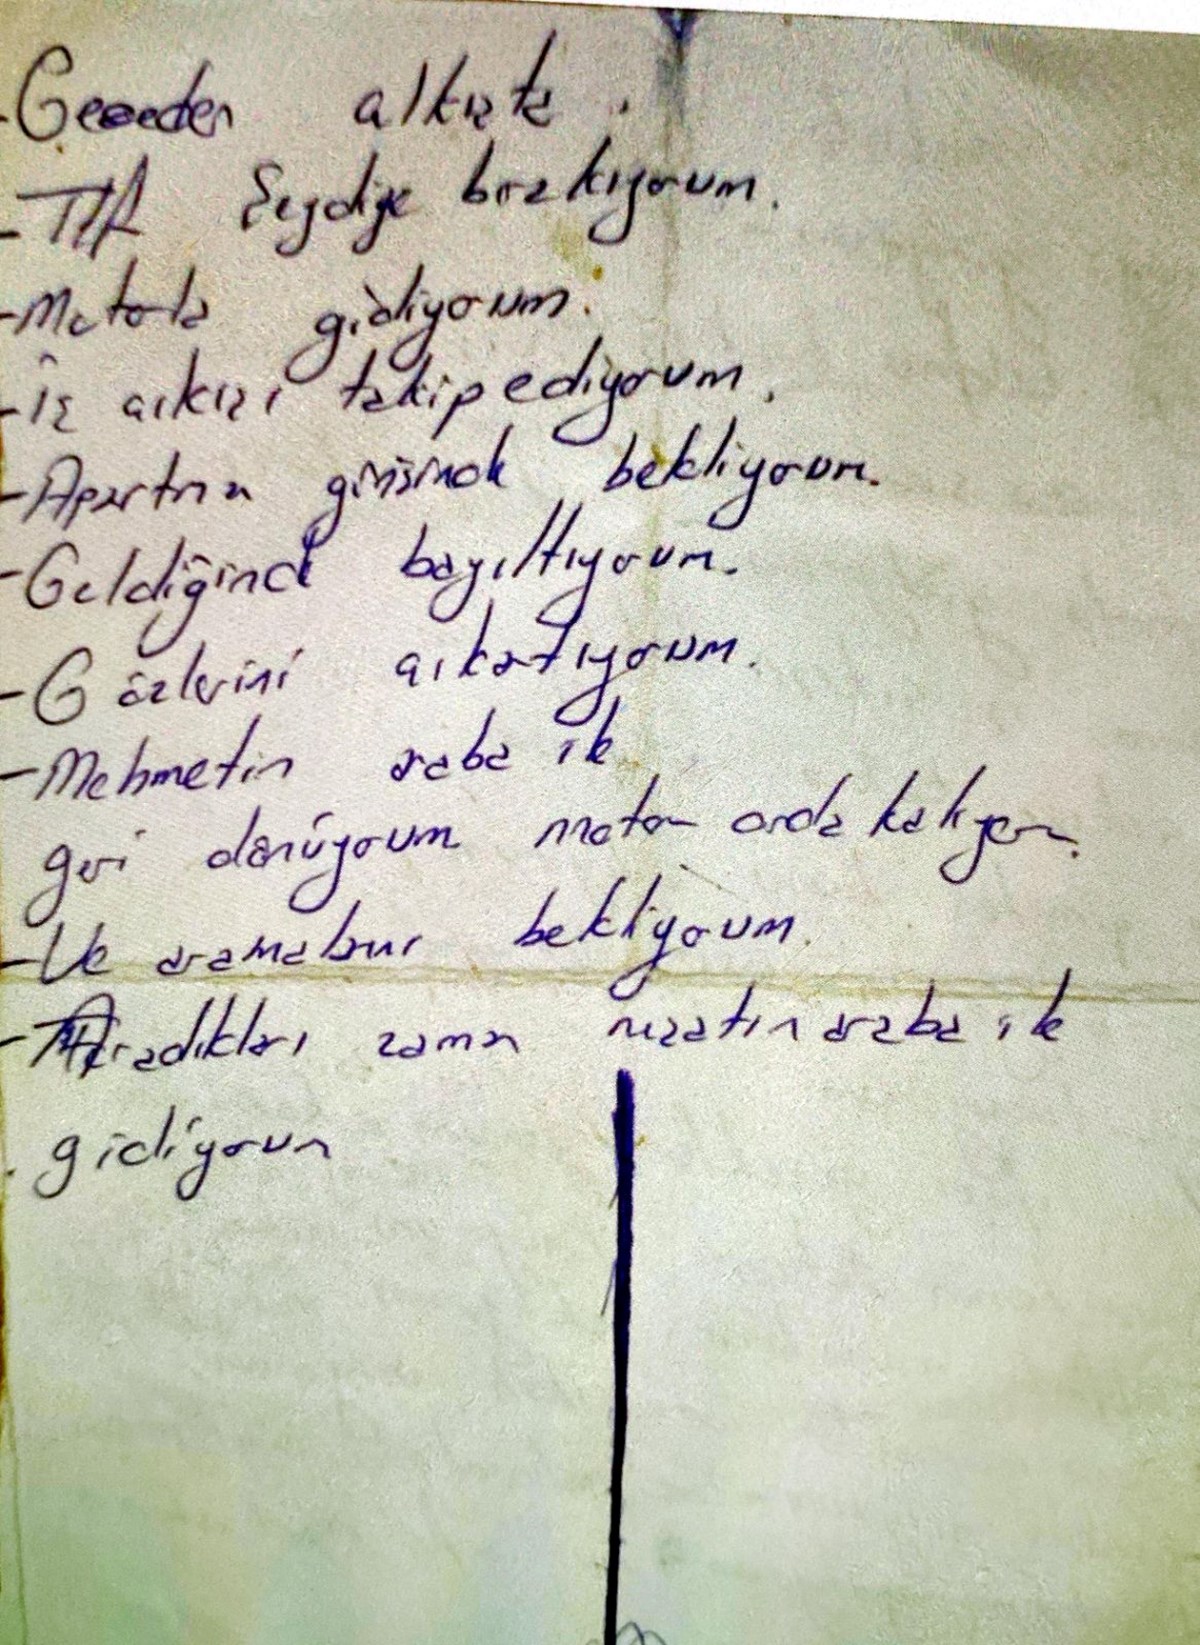 -Geceden alkızta.
-TIR Seydiye bırakıyorum.
-Motorla gidiyorum.
-İş çıkışı takip ediyorum.
-Apartman girişinde bekliyorum.
-Geldiğinde bayıltıyorum.
-Gözlerini çıkartıyorum.
-Mehmetin araba ile
geri dönüyorum motor orda kalıyor.
-Ve aramaları bekliyorum.
-Aradıkları zaman nızatın araba ile
gidiyorum